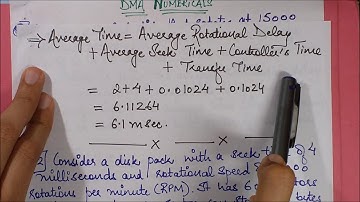 DMA NUMERICALS
at 15000
⇒ Average Time = Average Rotational Delay
+ Average Seek Time + Controller's Time
+ Transfer Time
= 2 + 4 + 0.01024 + 0.1024
= 6.11264
= 6.1 msec.
x x
2] Consider a disk pack with a seek of 4
milliseconds and rotational speed
rotations per minute (RPM). It has 6
bytes